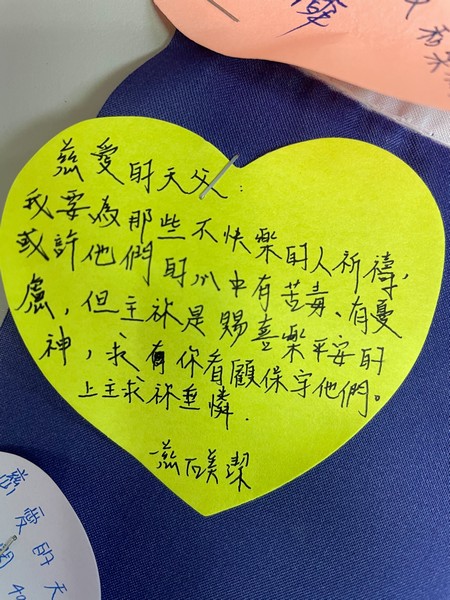 慈愛的天父:
我要為那些不快樂的人祈禱,
或許他們的心中有苦毒、有憂
慮,但主祢是賜喜樂平安的
神,求你看顧保守他們。
上主求祢垂憐.
美潔
慈愛的天